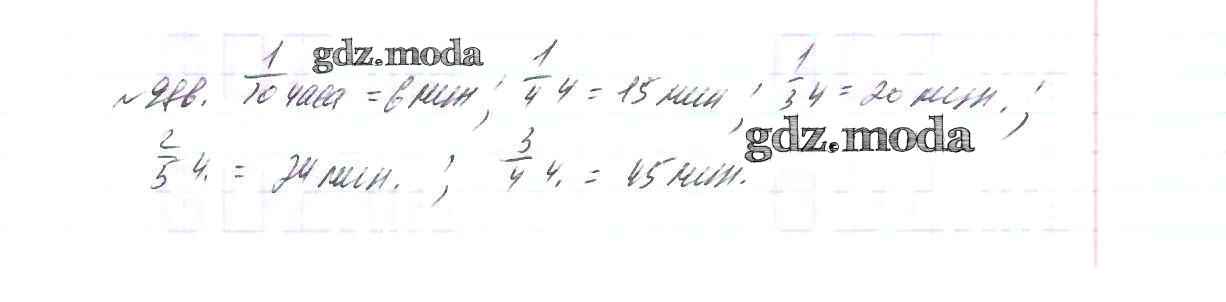 gdz.moda
1/10 часа = 6 мин; 1/4 ч = 15 мин; 1/3 ч = 20 мин.;
gdz.moda
2/5 ч. = 24 мин.; 3/4 ч. = 45 мин.